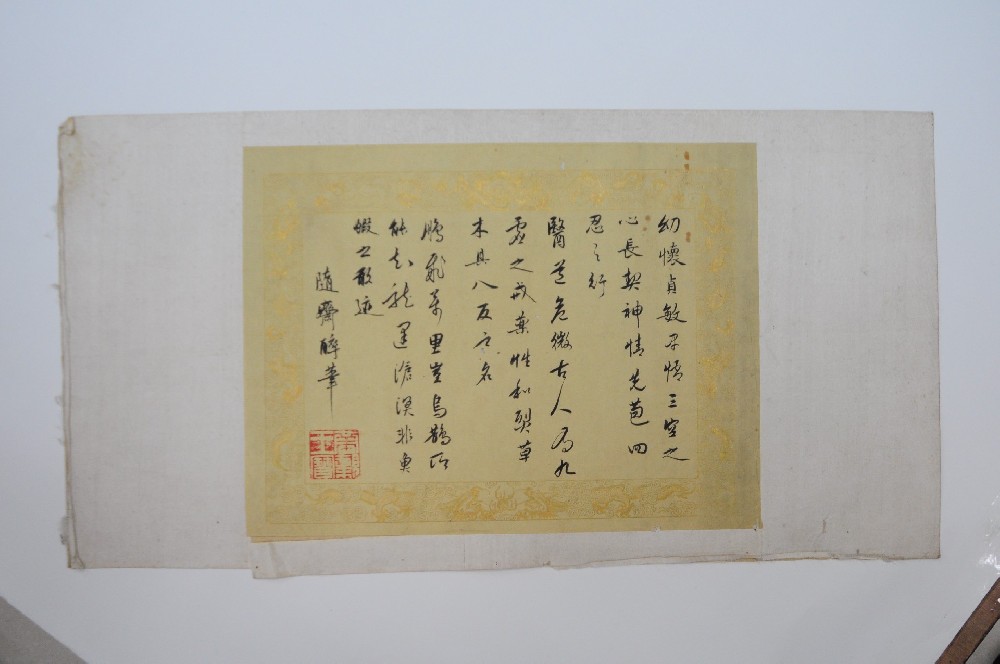 幼懷貞敏早悟三空之
心長契神情先苞四
忍之行
醫道危微古人為九
虛之戒藥性和製草
木具八反之名
鵬飛萬里豈烏鵲所
能知龍運滄溟非魚
蝦之敢跡
隨齋醉筆